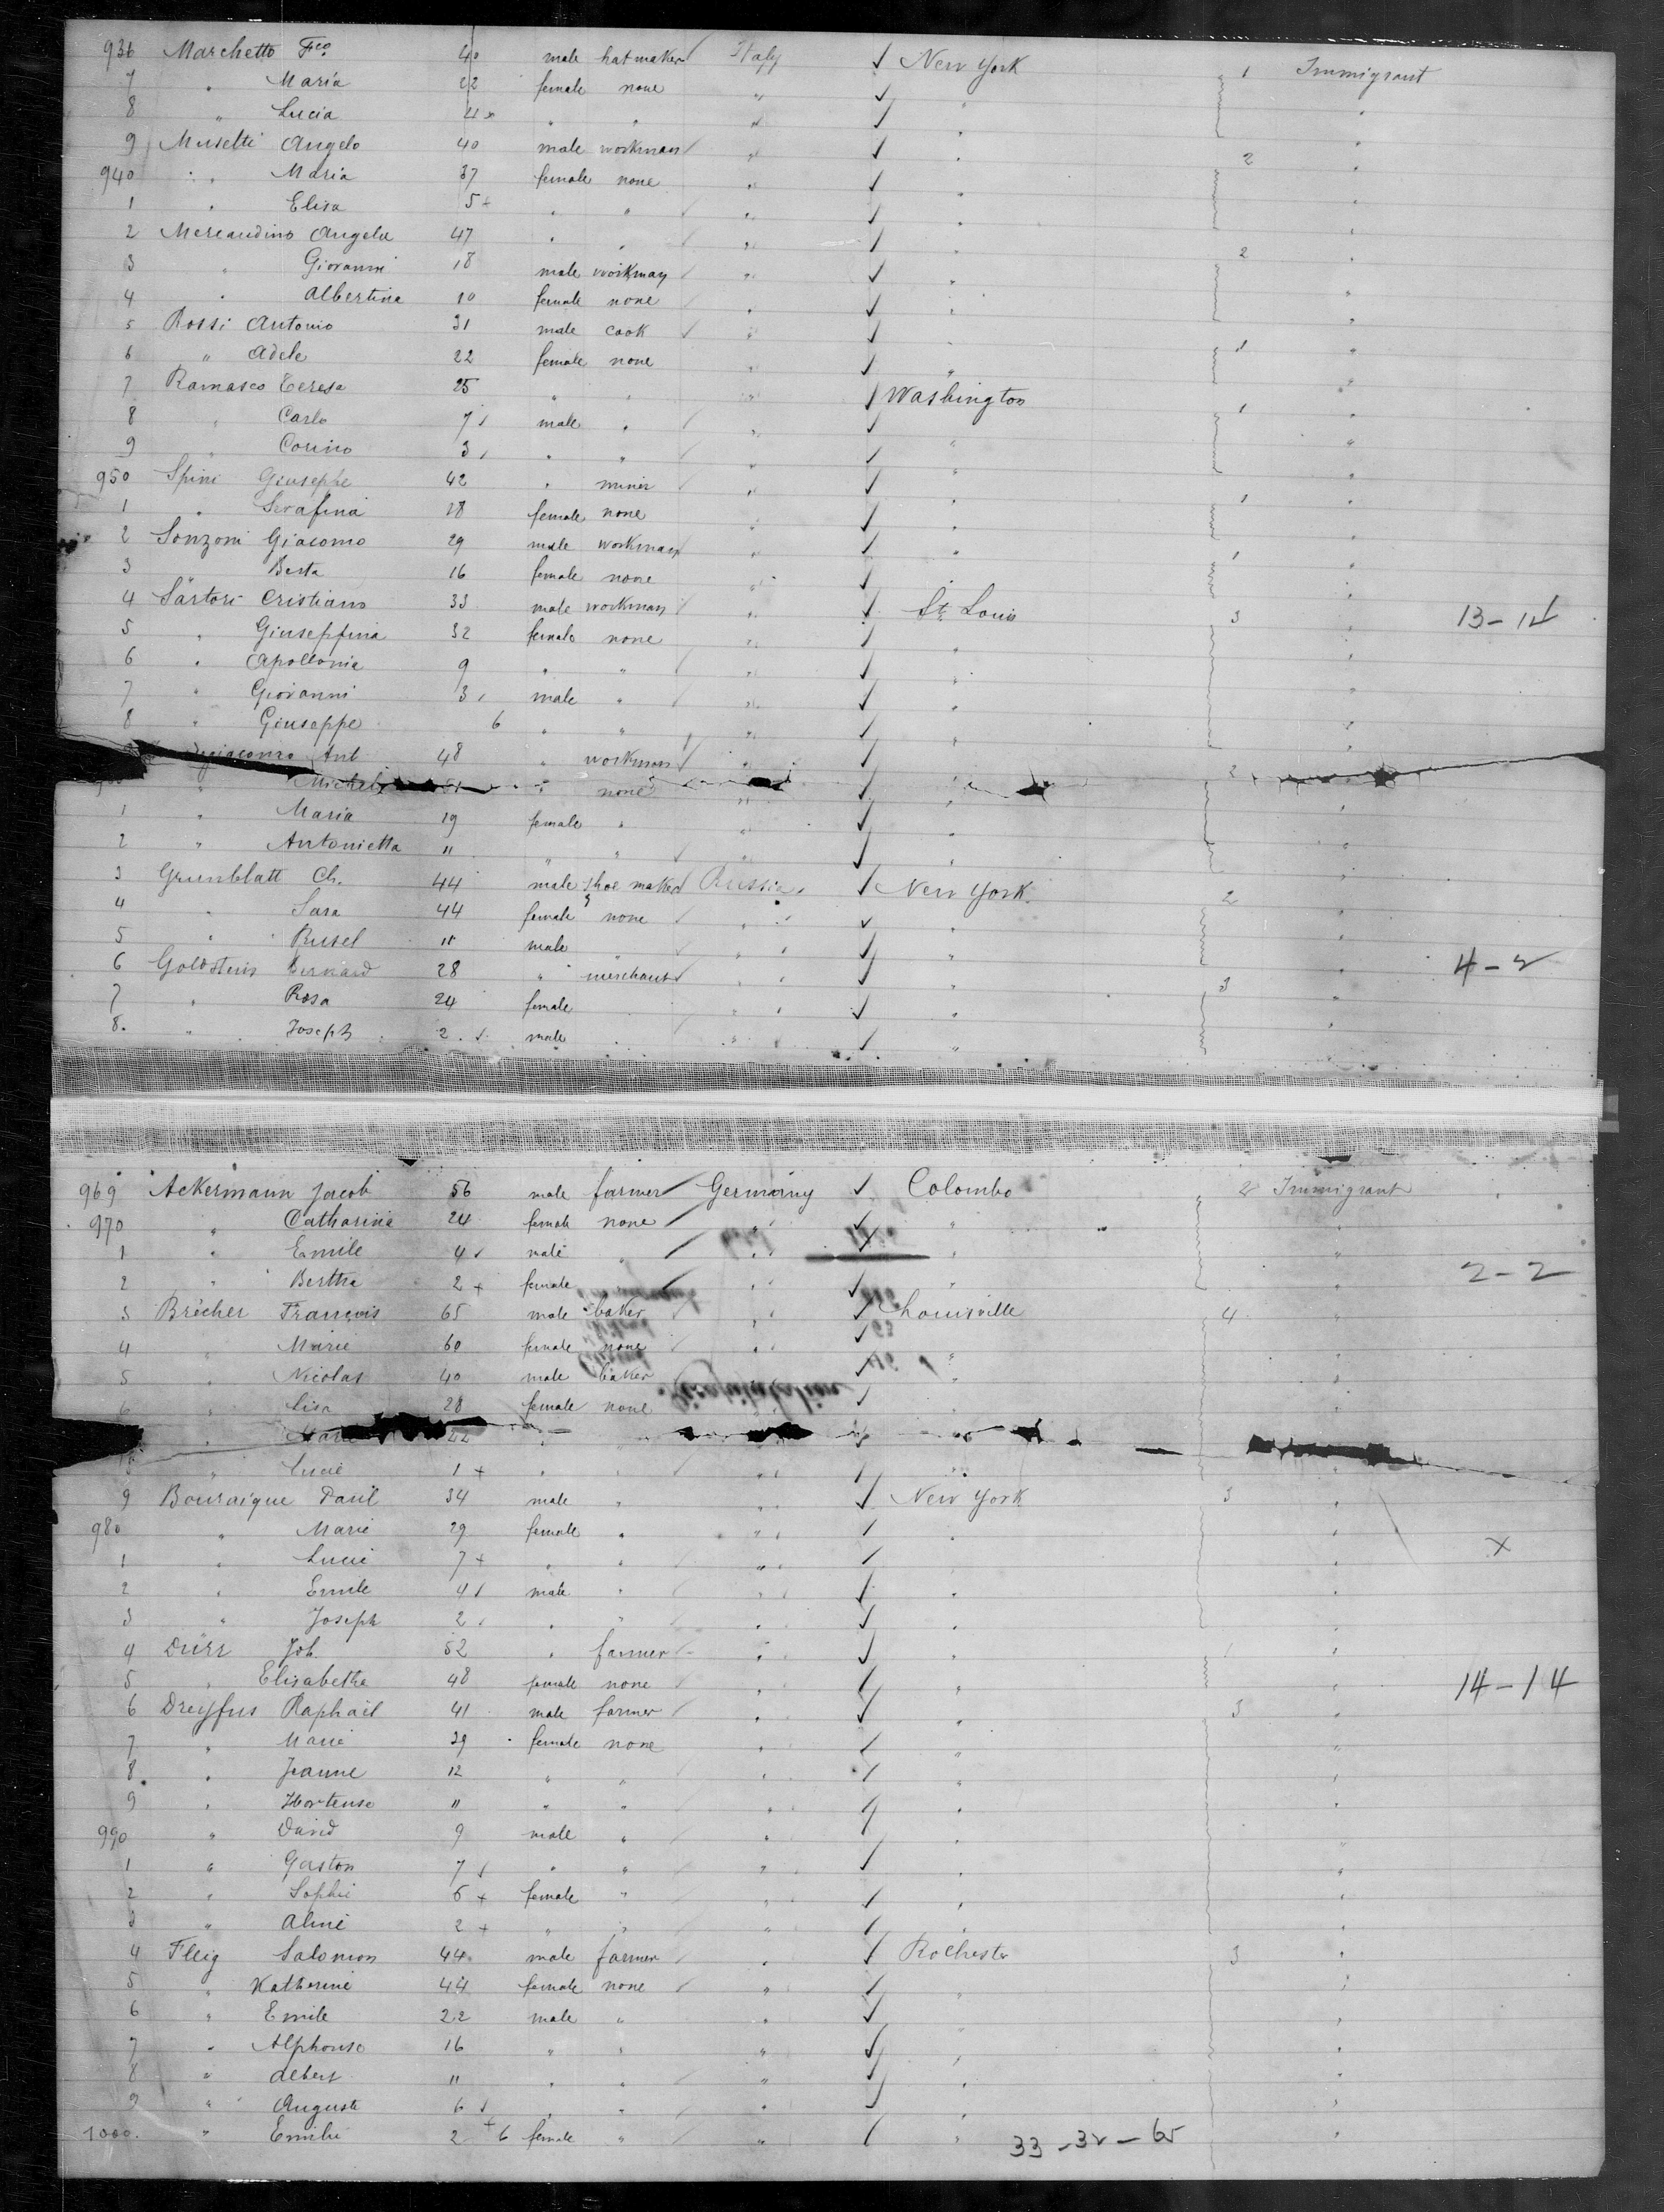 936 Marchetto Fco 40 male hatmaker Italy ✓ New York 1 Immigrant
7 " Maria female none " ✓ " "
8 " Lucia " " " ✓ " "
9 Musetti Angelo 40 male workman " ✓ " 2 "
940 " Maria 37 female none " ✓ " "
1 " Elisa 5 + " " " ✓ " "
2 Mercandino Angela 47 " " " ✓ " 2 "
3 " Giovanni 18 male workman " ✓ " "
4 " Albertina 10 female none " ✓ " "
5 Rossi Antonio 31 male cook " ✓ " 1 "
6 " Adele 22 female none " ✓ " "
7 Ramasco Teresa 25 " " " ✓ Washington 1 "
8 " Carlo 7 ✓ male " " ✓ " "
9 " Corino 3 ✓ " " " ✓ " "
950 Spini Giuseppe 42 " miner " ✓ " 1 "
1 " Serafina female none " ✓ " "
2 Sonzoni Giacomo 29 male workman " ✓ " 1 "
3 Berta 16 female none " ✓ " "
4 Sartori Cristiano 33 male workman " ✓ St. Louis 3 " 13-14
5 " Giuseppina 32 female none " ✓ " "
6 " Apollonia 9 " " " ✓ " "
7 " Giovanni 3 ✓ male " " ✓ " "
8 " Giuseppe 6 " " " ✓ " "
Ant 48 " workman " ✓ " 2 "
" " none " ✓ " "
1 " Maria 19 female " " ✓ " "
2 " Antonietta 11 " " " ✓ " "
3 Grunblatt Ch. 44 male shoe maker Russia ✓ New York 2 "
4 " Sara 44 female none " ✓ " "
5 " Rusel 11 male " " ✓ " "
6 Goldstein Bernard 28 " merchant " ✓ " 3 " 4-2
7 " Rosa 24 female " ✓ " "
8. " Joseph 2 ✓ male " ✓ " "
969 Ackermann Jacob 56 male farmer Germany ✓ Colombo 2 Immigrant
970 " Catharina 24 female none " ✓ " "
1 " Emile 4 ✓ male " " ✓ " "
2 " Bertha 2 + female " " ✓ " " 2-2
3 Brécher François 65 male baker " ✓ Louisville 4 "
4 " Marie 60 female none " ✓ " "
5 " Nicolas 40 male baker " ✓ " "
6 " Lisa 28 female none " ✓ " "
" Marie 22 "
" Lucie 1 + " " " ✓ " "
9 Bouraique Paul 34 male " " ✓ New York 3 "
980 " Marie 29 female " " ✓ " " X
1 " Lucie 7 + " " " ✓ "
2 " Emile 4 ✓ male " " ✓ " "
3 " Joseph 2 ✓ " " " ✓ " "
4 Dürr Joh. 52 " farmer " ✓ " 1 "
5 " Elisabetha 48 female none " ✓ " " 14-14
6 Dreyfus Raphaël 41 male farmer " ✓ " 3 "
7 " Marie 39 female none " ✓ " "
8 " Jeanne 12 " " " ✓ " "
9 " Hortense 11 " " " ✓ " "
990 " David 9 male " " ✓ " "
1 " Gaston 7 ✓ " " " ✓ " "
2 " Sophie + female " " ✓ " "
3 " Aline 2 + " " " ✓ " "
4 Fleig Salomon 44 male farmer " ✓ Rochester 3 "
5 " Katherine 44 female none " ✓ " "
6 " Emile 22 male " " ✓ " "
7 " Alphonse 16 " " " ✓ " "
8 " Albert 11 " " " ✓ " "
9 " Auguste 6 ✓ " " " ✓ " "
1000. " Emilie 2 + 6 female " " ✓ " "
33-32-65